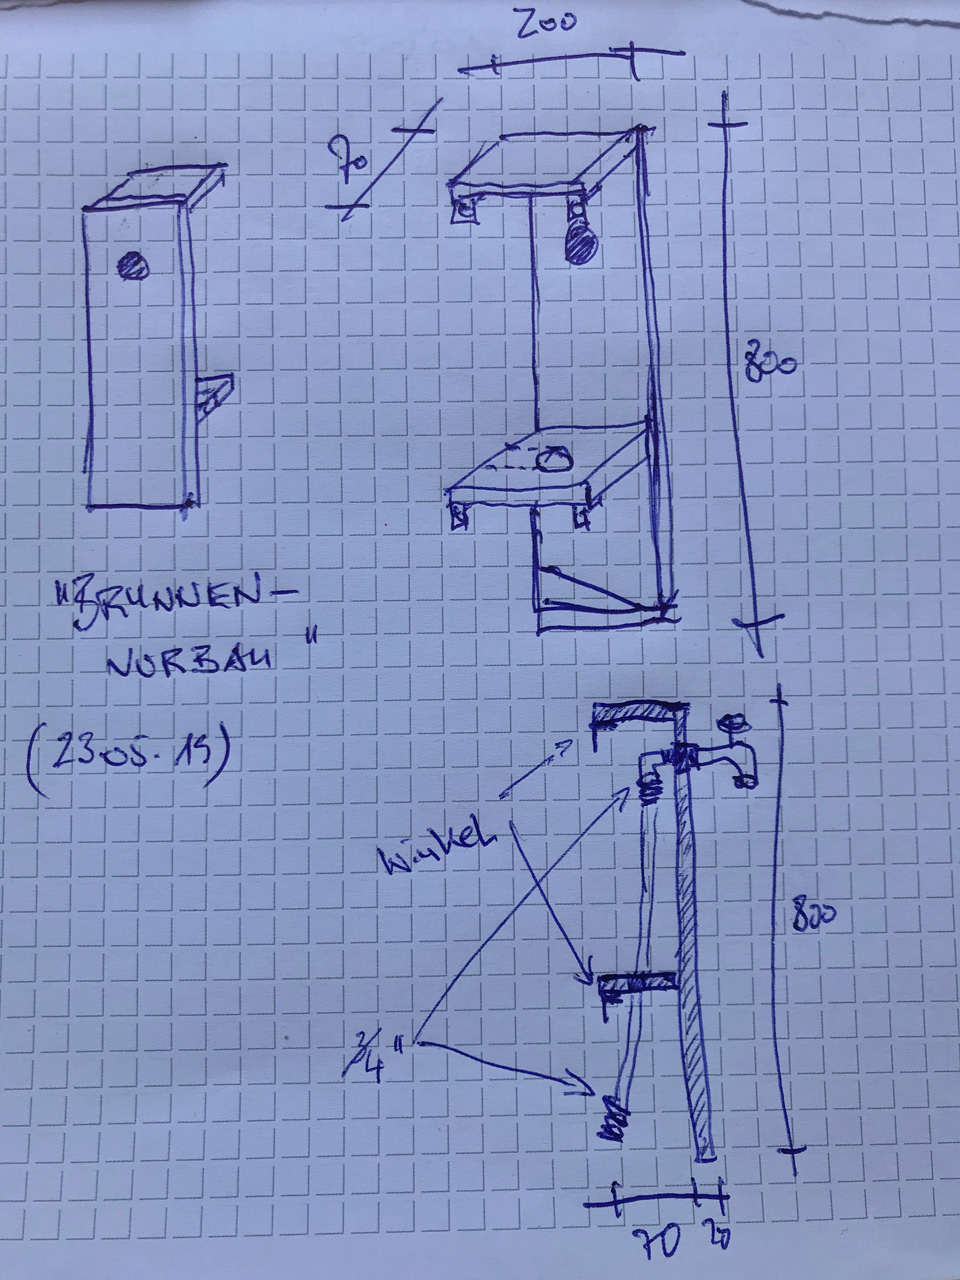 200
70
800
"BRUNNEN-
VORBAU"
(23.05.19)
Winkel
800
3/4"
70 20